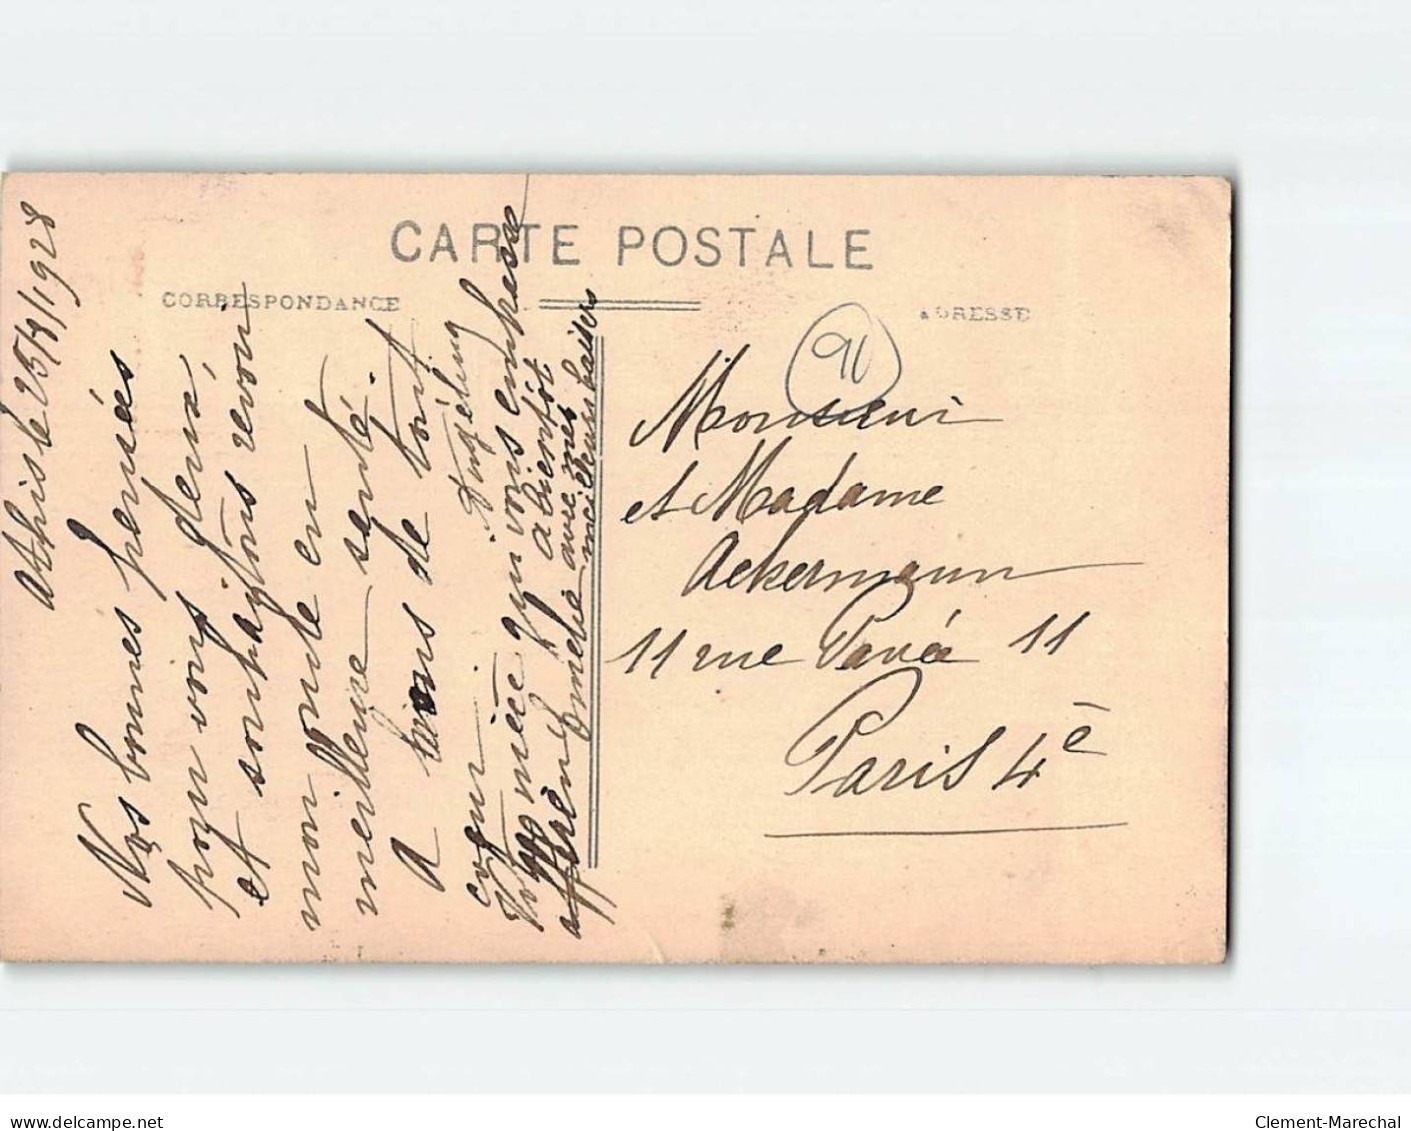 CARTE POSTALE
CORRESPONDANCE
ADRESSE
91
Athis le 25/8/1928
Nos bonnes pensées
pour vous deux,
et souhaitons revoir
mon oncle en
meilleure santé.
A vous de tout
cœur
Votre nièce qui vous embrasse
à bientôt
avec mes
meilleurs baisers
Monsieur
et Madame
Ackermann
11 rue Pavée 11
Paris 4e
delcampe.net
Clement-Marechal